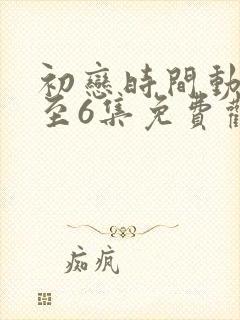 初戀時間動
至6集免費觀
痴疯